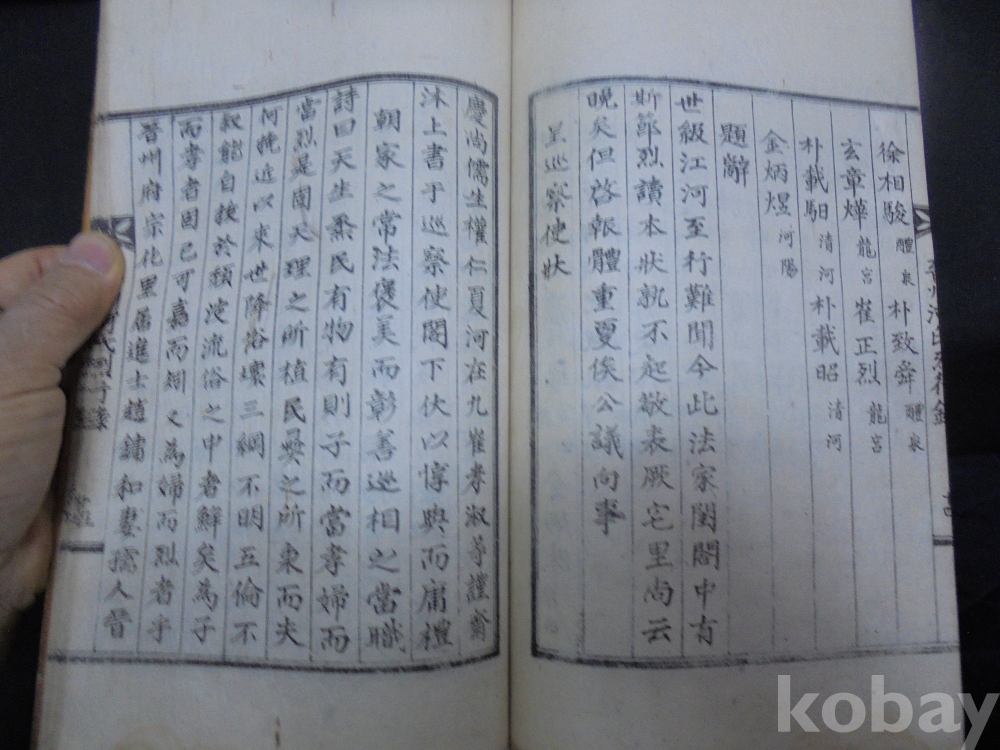 徐相駿 醴泉 朴致舜 醴泉
玄章燁 龍宮 崔正烈 龍宮
朴載馹 清河 朴載昭 清河
金炳煜 河陽
題辭
世級江河至行難聞今此法家閨閤中有
斯節烈讀本狀孰不起敬表厥宅里尚云
晩矣但啓報體重更俟公議向事
呈巡察使狀
慶尚儒生權仁夏河在九崔孝淑等謹齋
沐上書于巡察使閤下伏以惇典而庸禮
朝家之常法褒美而彰善巡相之當職
詩曰天生烝民有物有則子而當孝婦而
當烈是固天理之所植民彛之所秉而夫
何挽近以來世降俗壞三綱不明五倫不
叙能自拔於頹淀流俗之中者鮮矣為子
而孝者固已可嘉而矧又為婦而烈者乎
晉州府宗化里居進士趙鏽和妻孺人晉
氏
行錄
kobay